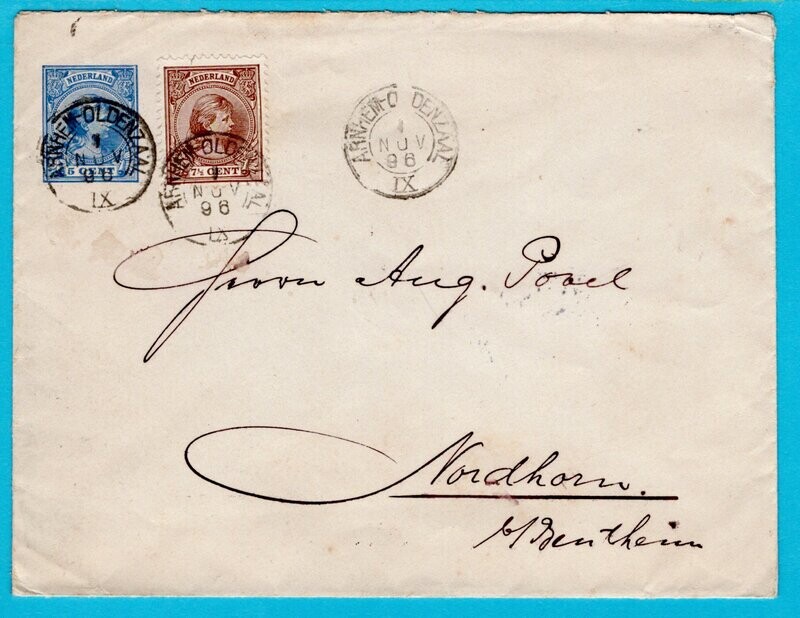 NEDERLAND
5 CENT
NEDERLAND
7½ CENT
ARNHEM-OLDENZAAL
1
NOV
96
IX
ARNHEM-OLDENZAAL
1
NOV
96
IX
ARNHEM-O DENZAAL
1
NOV
96
IX
Herrn Aug. Povel
Nordhorn.
b/Bentheim